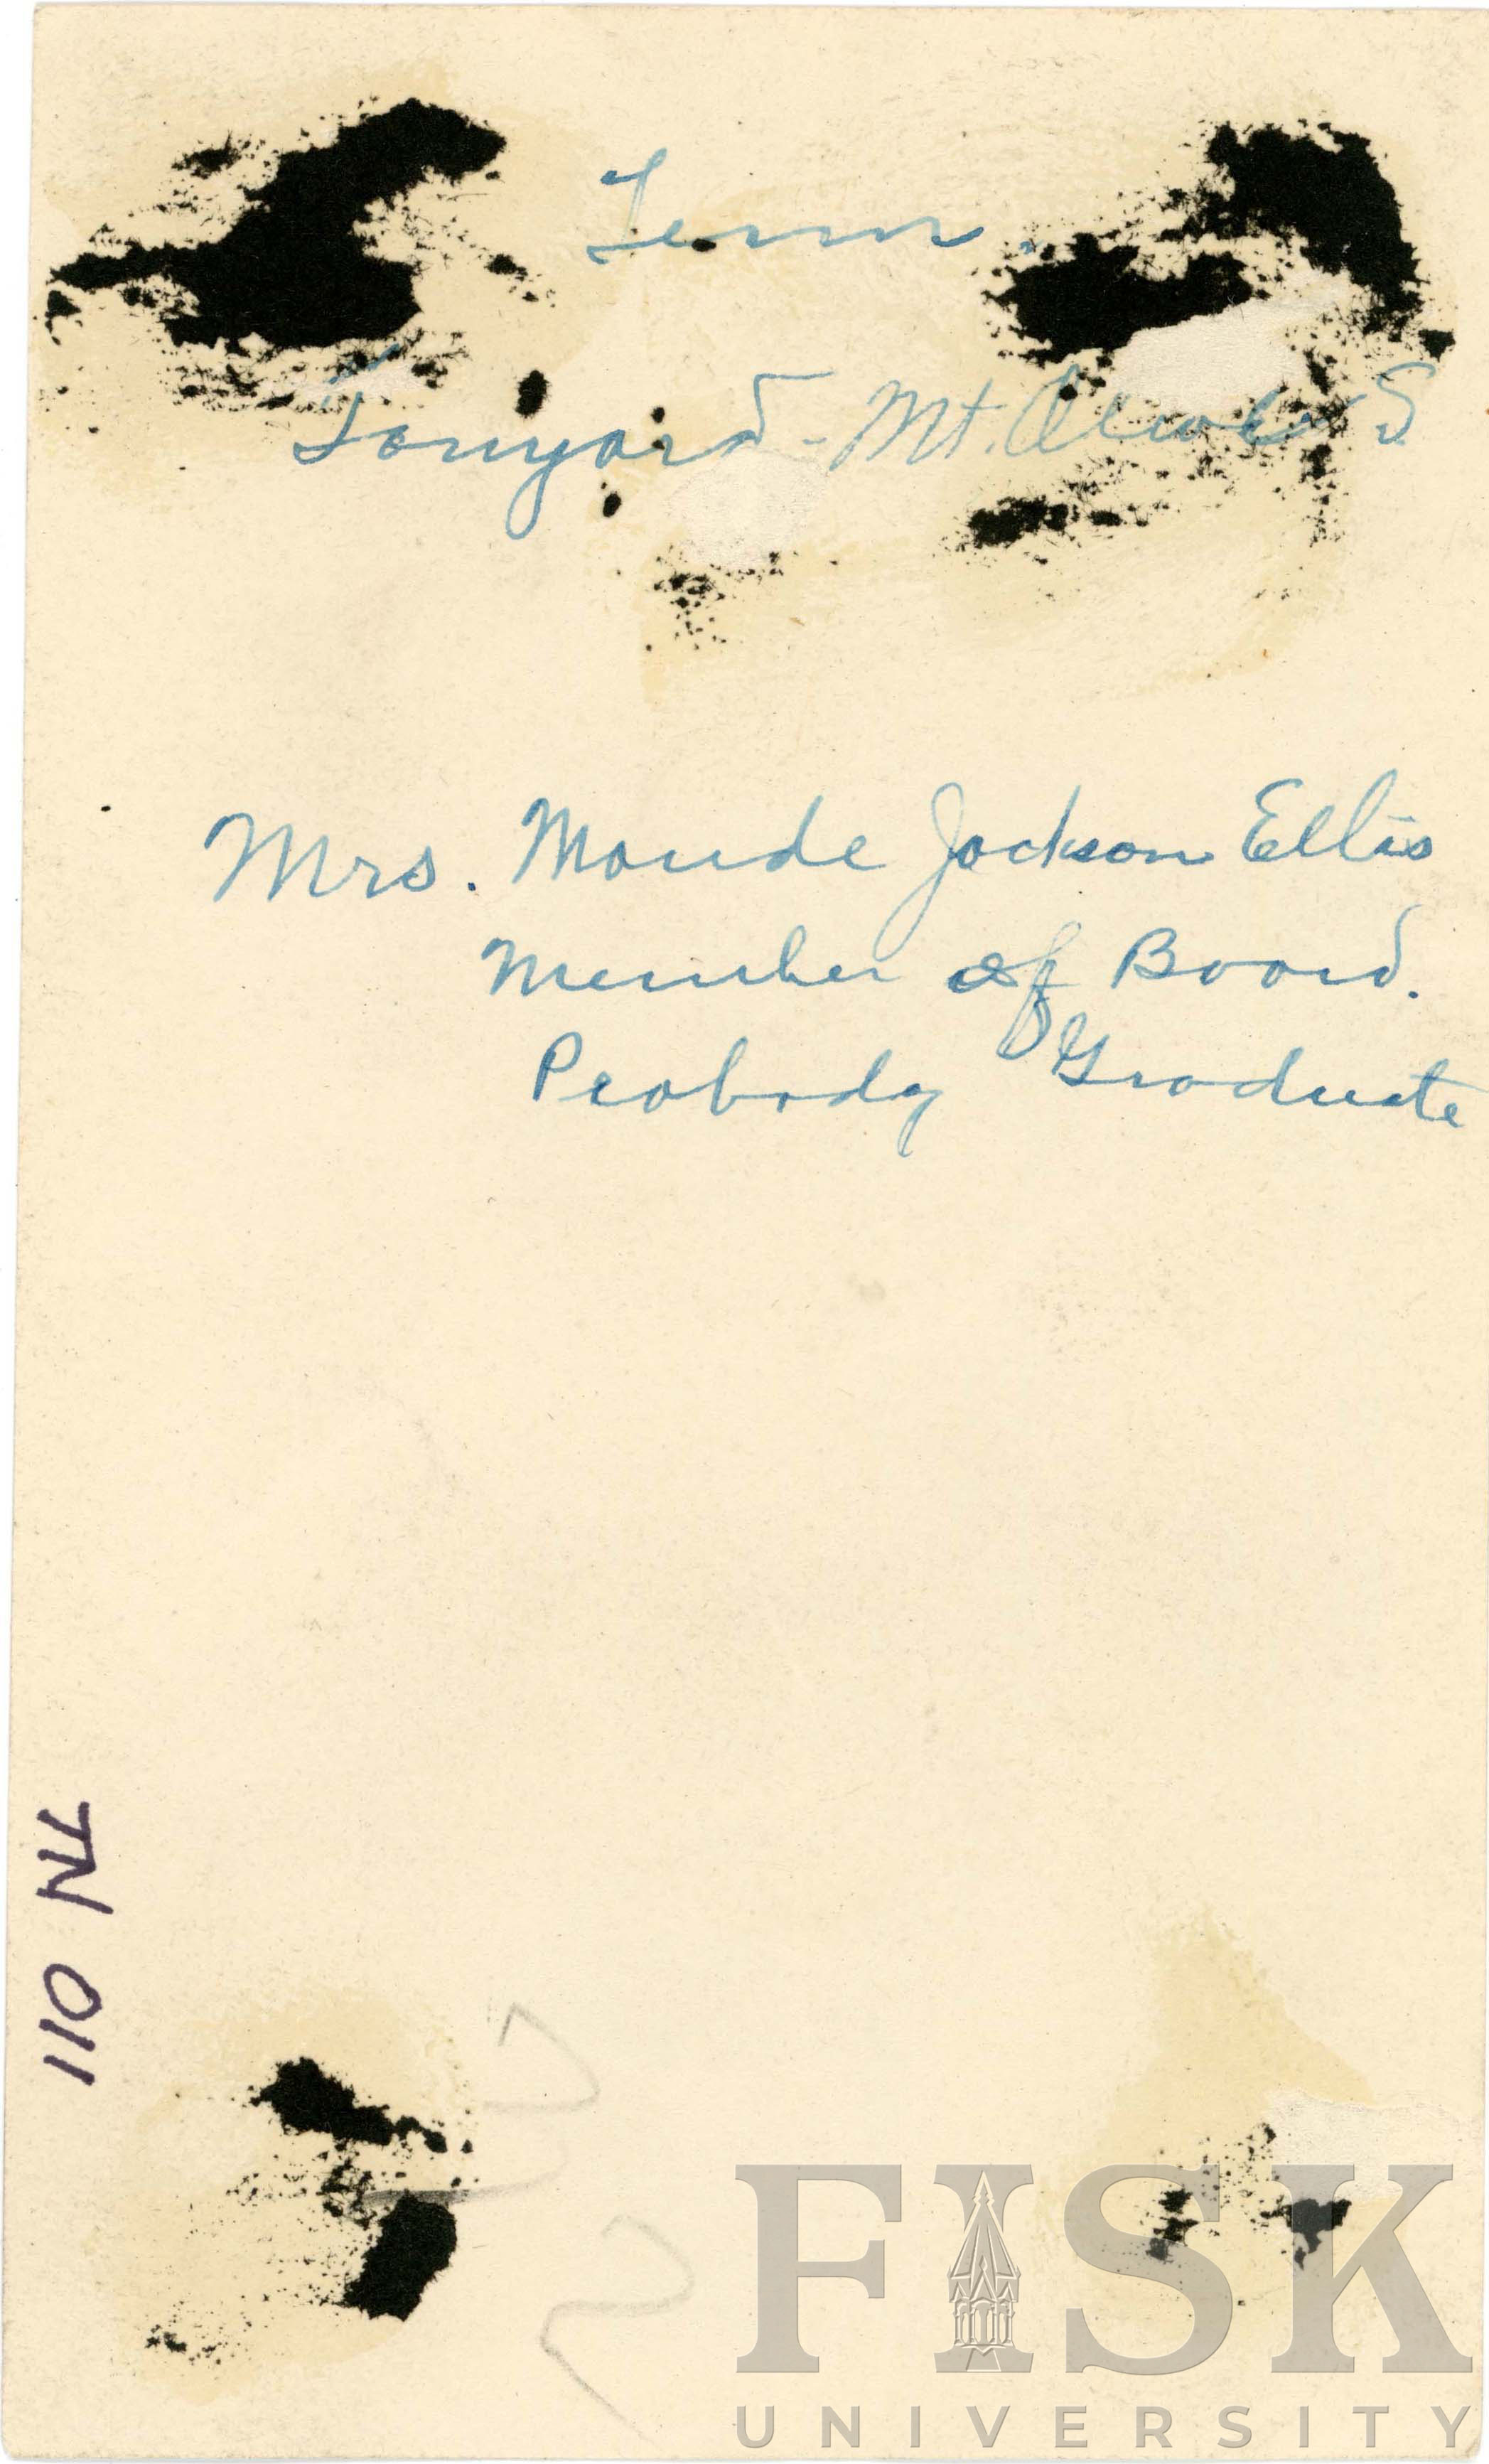 Tenn.
Tanyard - Mt. Olive S
Mrs. Maude Jackson Ellis
Member of Board.
Peabody Graduate
TN 011
FISK
UNIVERSITY